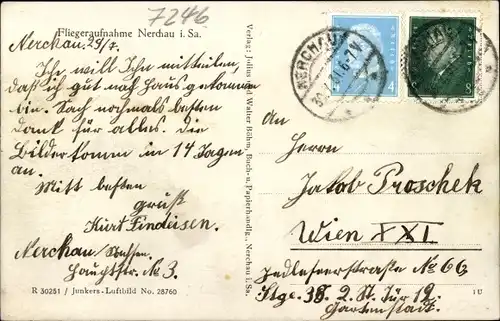 7246
Fliegeraufnahme Nerchau i. Sa.
Nerchau. 29/7.
Ich will Ihn mitteilen,
daß ich gut nach Haus gekommen
bin. Sach nochmals besten
Dank für alles. Die
Bilder komm in 14 Tagen
an.
Mitt besten
gruß
Kurt Findeisen.
Nerchau/Sachsen.
Hauptstr. No 3.
R 30251 / Junkers-Luftbild No. 28760
Verlag: Julius Walter Böhm, Buch- u. Papierhandlg., Nerchau i. Sa.
NERCHAU
6-7
4
8
An
Herrn
Jakob Proschek
Wien XXI
Jedleseerstraße No 66
Stge. 38. 2. St. Tür 12.
Gartenstadt.
1 U